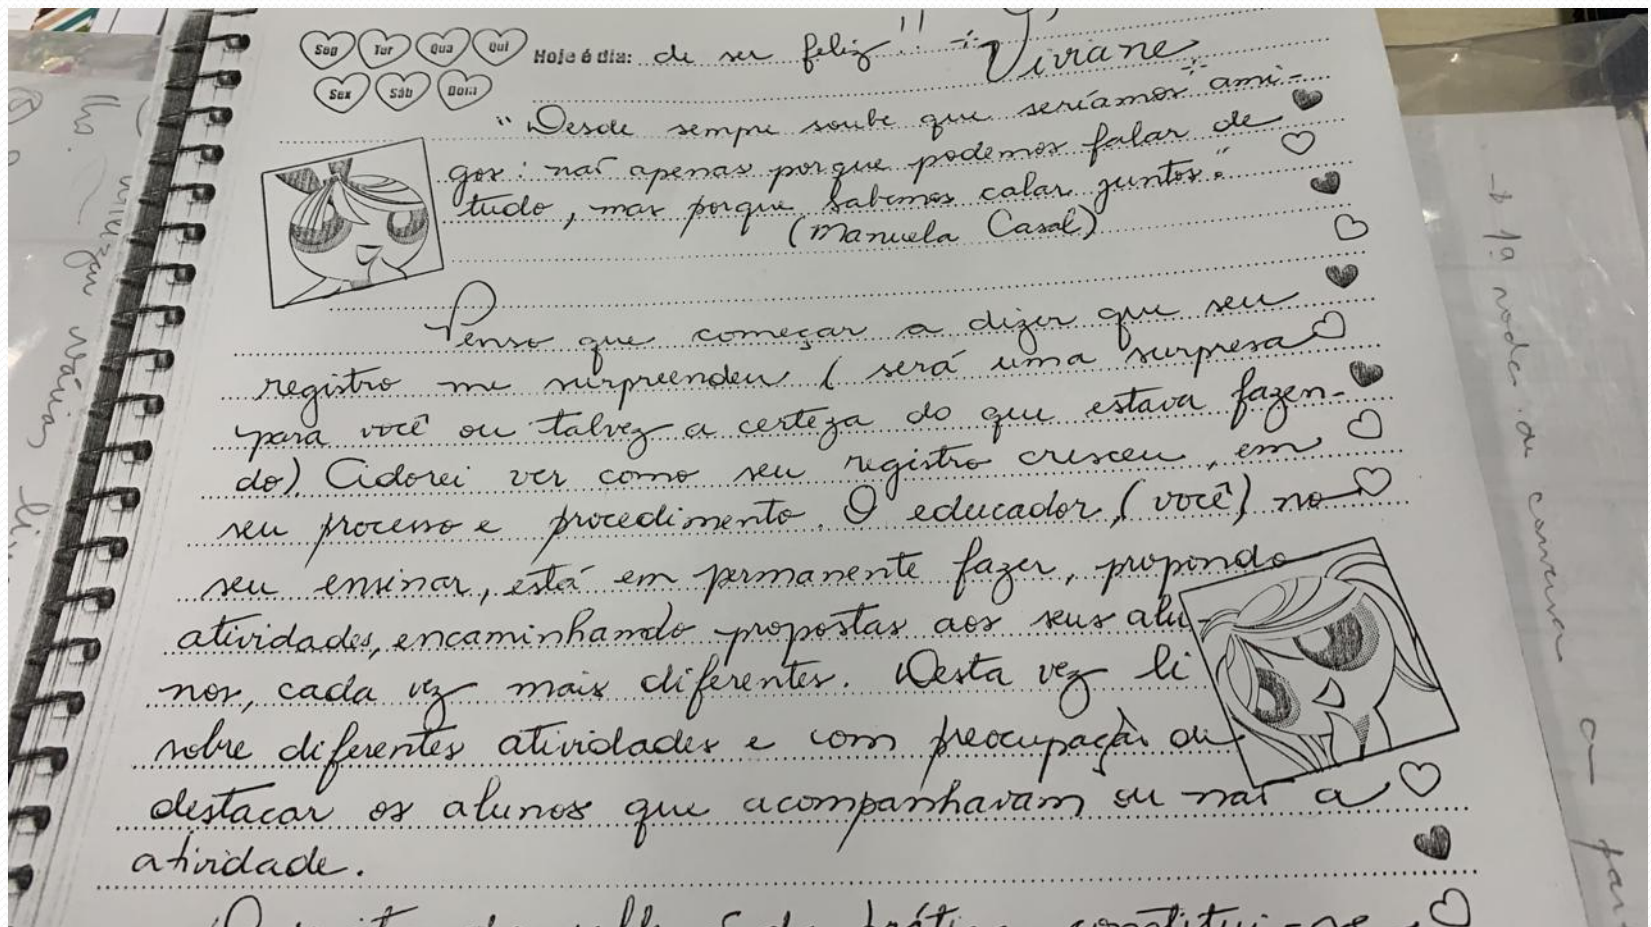 Seg Ter Qua Qui
Hoje é dia: de ser feliz!! Viviane
Sex Sáb Dom
"Desde sempre soube que seríamos ami-
gos: não apenas porque podemos falar de
tudo, mas porque sabemos calar juntos."
(Manuela Casal)
Penso que começar a dizer que seu
registro me surpreendeu (será uma surpresa
para você ou talvez a certeza do que estava fazen-
do). Adorei ver como seu registro cresceu, em
seu processo e procedimento. O educador, (você) no
seu ensinar, está em permanente fazer, propondo
atividades, encaminhando propostas aos seus alu-
nos, cada vez mais diferentes. Desta vez li
sobre diferentes atividades e com preocupação de
destacar os alunos que acompanhavam ou não a
atividade.
prática constitui-se
→ 1ª roda de conversa
a